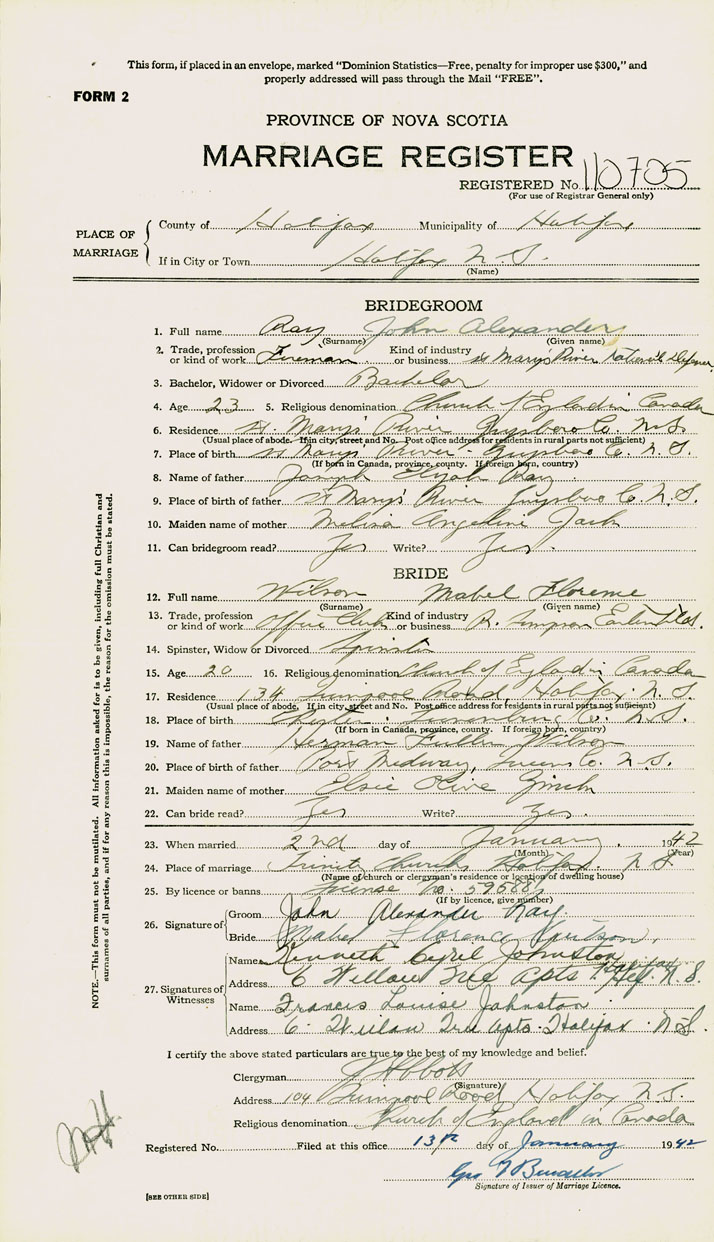 This form, if placed in an envelope, marked "Dominion Statistics—Free, penalty for improper use $300," and
properly addressed will pass through the Mail "FREE".
FORM 2
PROVINCE OF NOVA SCOTIA
MARRIAGE REGISTER
REGISTERED No. 110705
(For use of Registrar General only)
PLACE OF MARRIAGE
County of Halifax Municipality of Halifax
If in City or Town Halifax N.S.
(Name)
BRIDEGROOM
1. Full name Ray John Alexander
(Surname) (Given name)
2. Trade, profession or kind of work Fireman Kind of industry or business National Defence
3. Bachelor, Widower or Divorced Bachelor
4. Age 23 5. Religious denomination Church of England in Canada
6. Residence St. Mary's River Guysboro Co. N.S.
(Usual place of abode. If in city, street and No. Post office address for residents in rural parts not sufficient)
7. Place of birth St Marys River - Guysboro Co. N.S.
(If born in Canada, province, county. If foreign born, country)
8. Name of father Joseph Elijah Ray
9. Place of birth of father St Mary's River Guysboro Co. N.S.
10. Maiden name of mother Melisa Angeline Jack
11. Can bridegroom read? Yes Write? Yes.
BRIDE
12. Full name Wilson Mabel Florence
(Surname) (Given name)
13. Trade, profession or kind of work Office Clerk Kind of industry or business R. Simpson Eastern Ltd.
14. Spinster, Widow or Divorced Spinster
15. Age 20 16. Religious denomination Church of England in Canada
17. Residence 134 Liverpool Road, Halifax N.S.
(Usual place of abode. If in city, street and No. Post office address for residents in rural parts not sufficient)
18. Place of birth Chester Lunenburg Co. N.S.
(If born in Canada, province, county. If foreign born, country)
19. Name of father Herman Fuller Wilson
20. Place of birth of father Port Medway, Queens Co. N.S.
21. Maiden name of mother Elsie Olive Zinck
22. Can bride read? Yes Write? Yes.
23. When married 2nd day of January 1942
(Month) (Year)
24. Place of marriage Trinity Church Halifax. N.S.
(Name of church or clergyman's residence or location of dwelling house)
25. By licence or banns License No.
(If by licence, give number)
26. Signature of
Groom John Alexander Ray.
Bride Mabel Florence Wilson.
27. Signatures of Witnesses
Name Kenneth Cyril Johnston
Address 6 Willow Tree Apts Hfx. N.S.
Name Francis Louise Johnston
Address 6 Willow Tree Apts. Halifax N.S.
I certify the above stated particulars are true to the best of my knowledge and belief.
Clergyman
(Signature)
Address 104 Liverpool Road Halifax N.S.
Religious denomination Church of England in Canada
Registered No. Filed at this office 13th day of January 1942
Signature of Issuer of Marriage Licence.
[SEE OTHER SIDE]
NOTE.—This form must not be mutilated. All information asked for is to be given, including full Christian and
surnames of all parties, and if for any reason this is impossible, the reason for the omission must be stated.